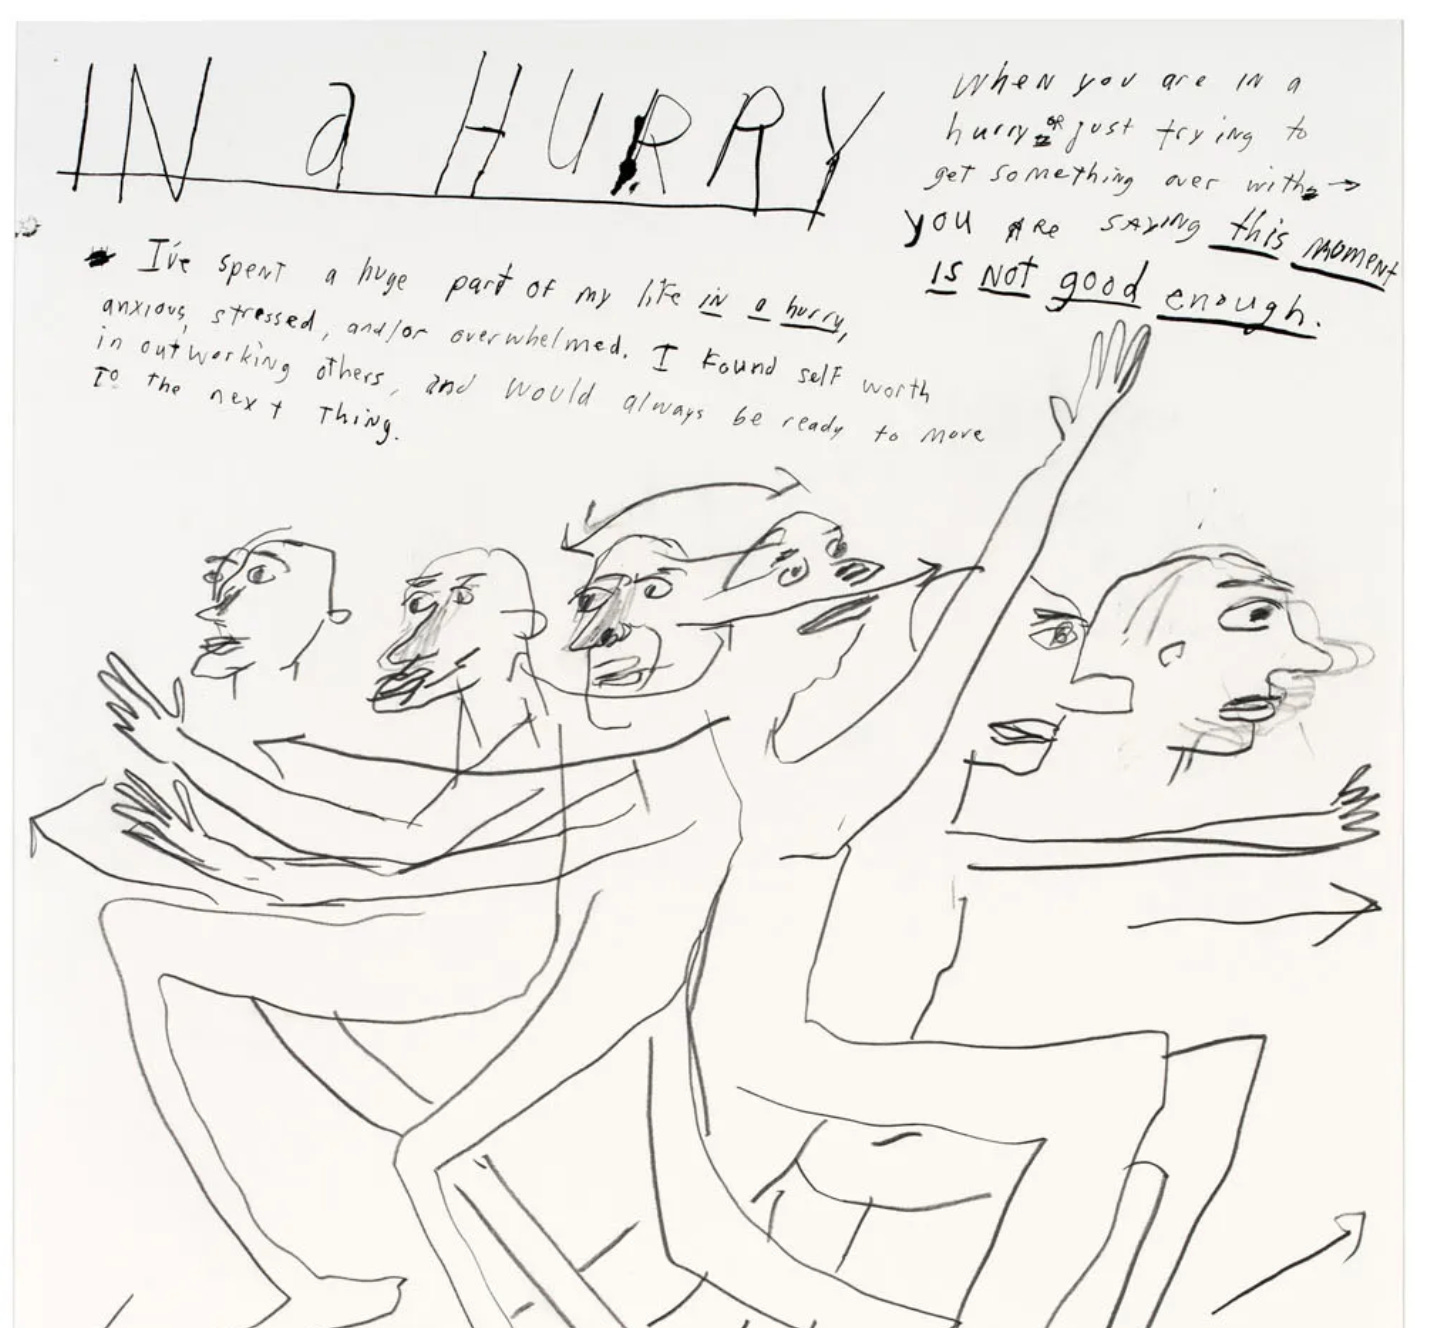 IN a HURRY
When you are in a
hurry or just trying to
get something over with →
you are saying this moment
is not good enough.
I've spent a huge part of my life in a hurry,
anxious, stressed, and/or overwhelmed. I found self worth
in outworking others, and would always be ready to move
to the next thing.